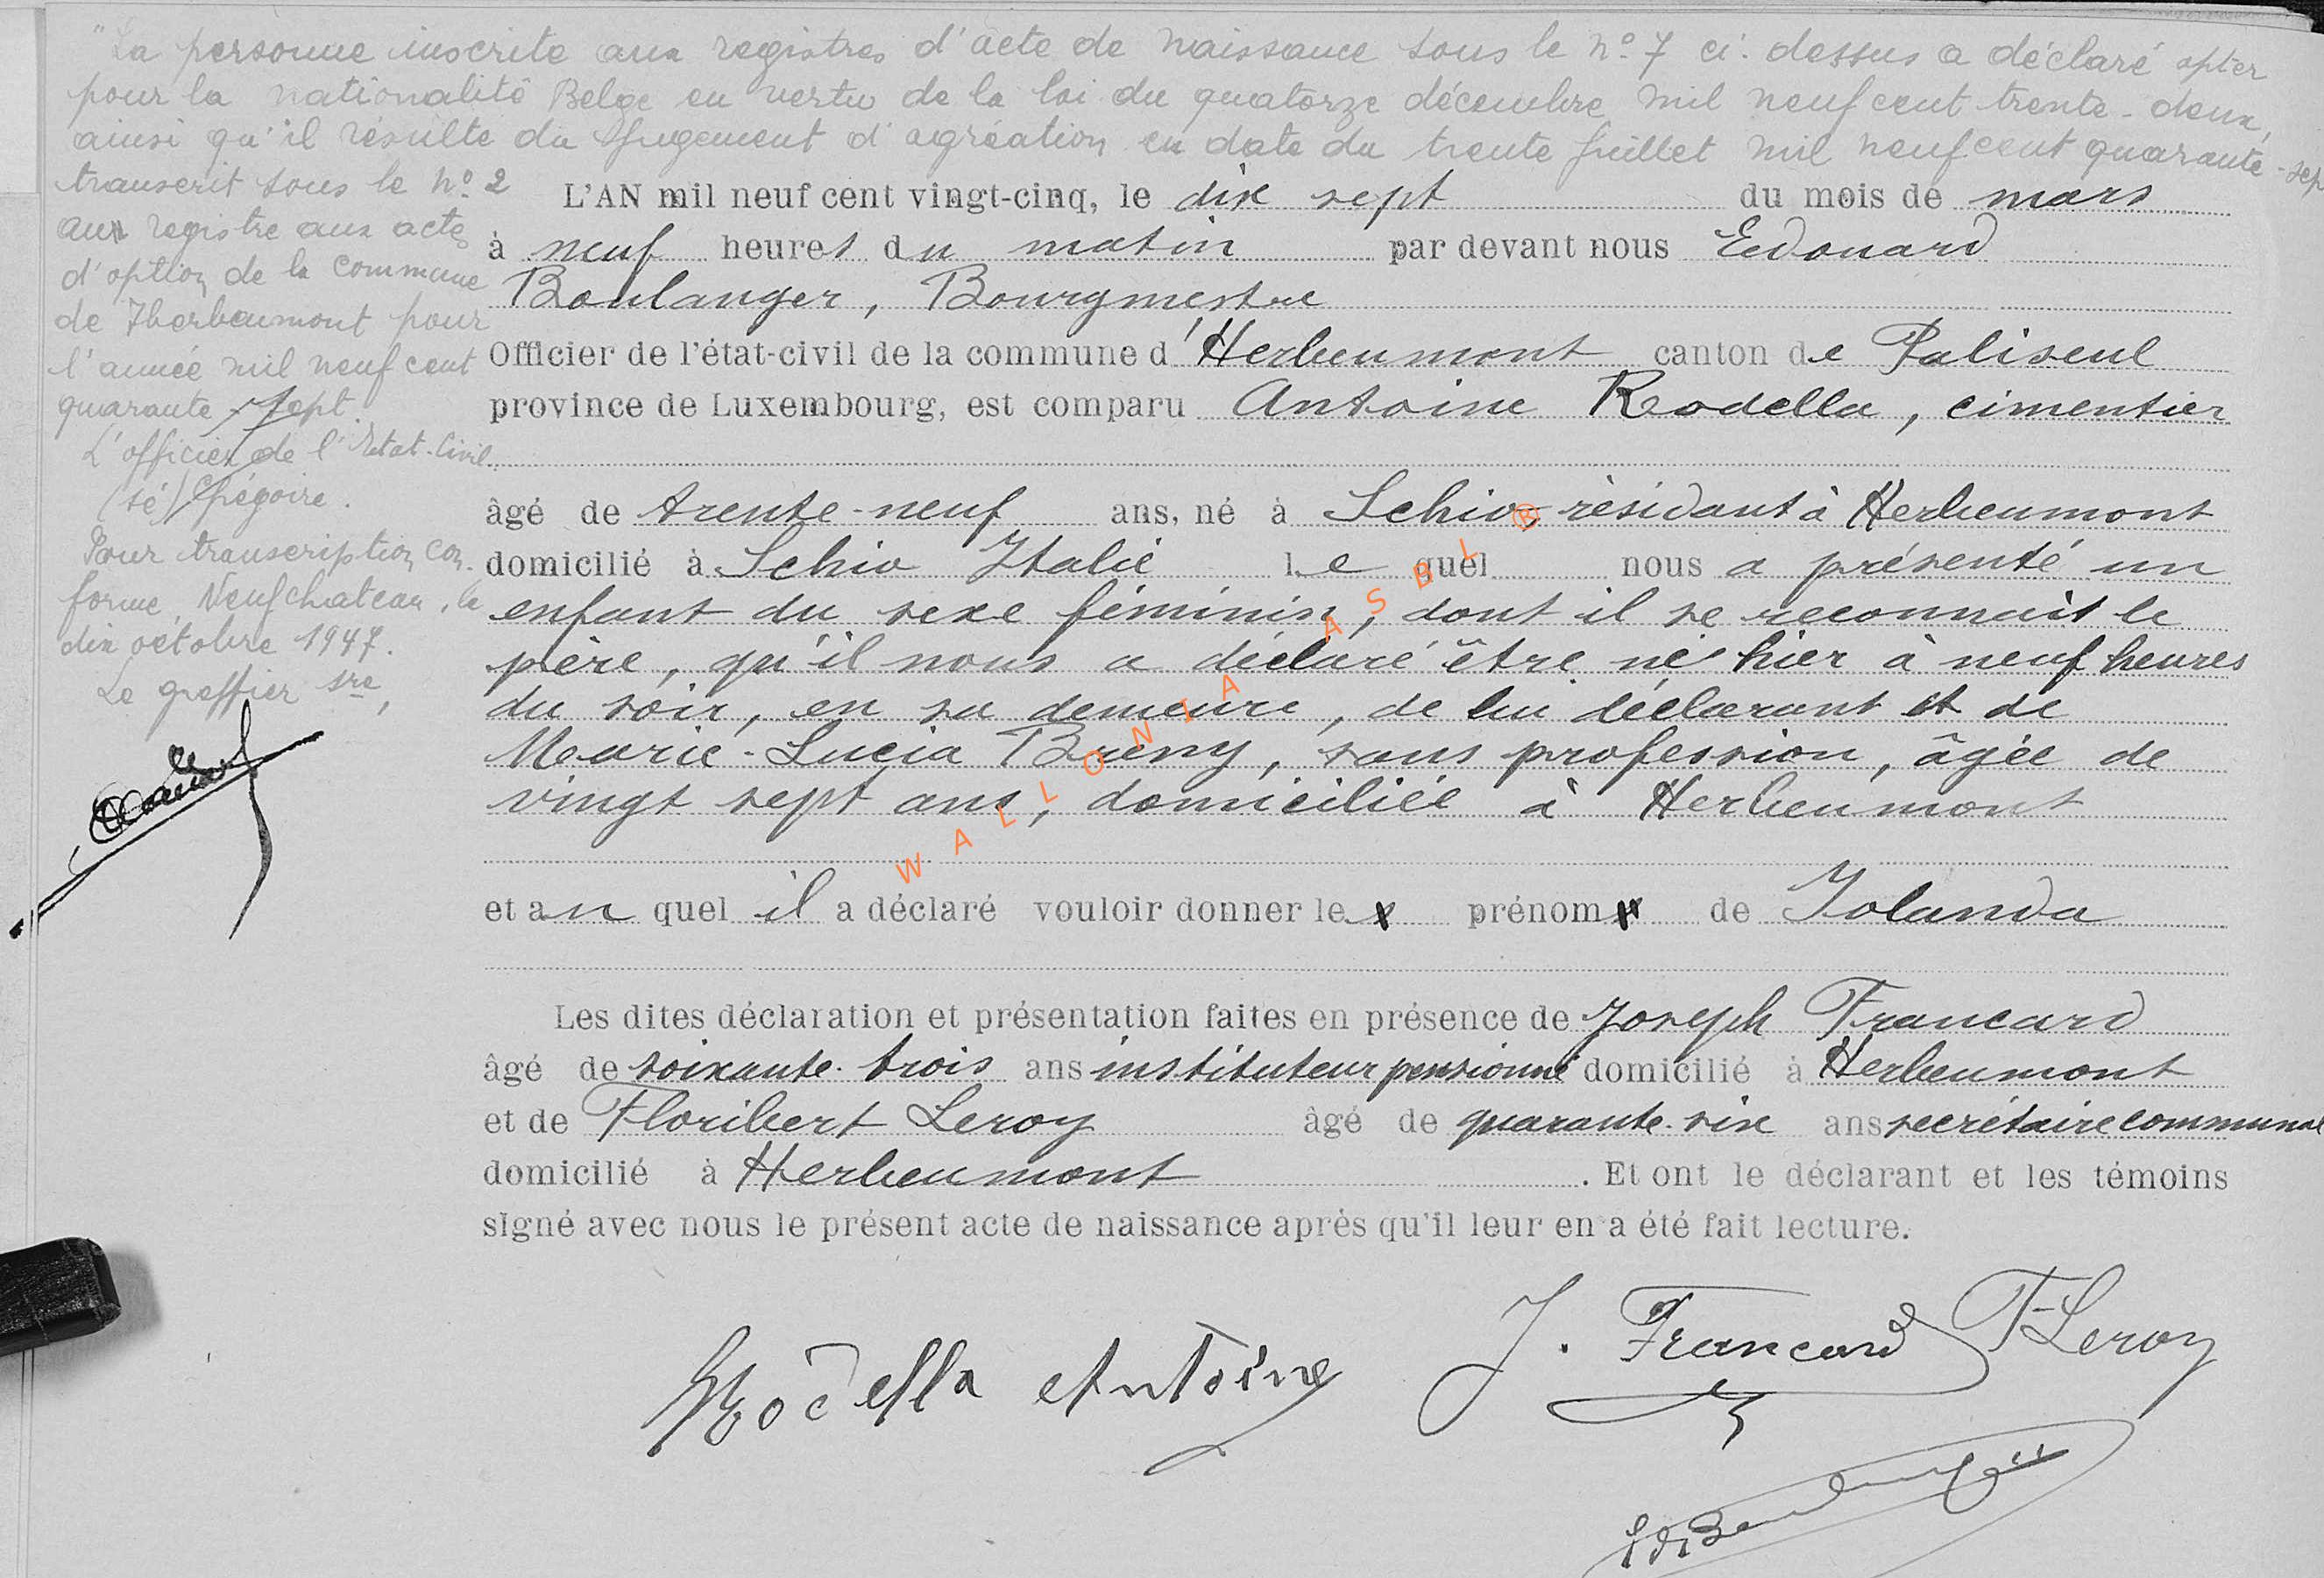 "La personne inscrite aux registres d'acte de naissance sous le n° 7 ci-dessus a déclaré opter
pour la nationalité Belge en vertu de la loi du quatorze décembre mil neuf cent trente-deux,
ainsi qu'il résulte du jugement d'agréation en date du trente juillet mil neuf cent quarante-sep
transcrit sous le n° 2
aux registre aux actes
d'option de la commune
de Herbeumont pour
l'année mil neuf cent
quarante-sept.
L'officier de l'Etat-Civil
(sé) Grégoire.
Pour transcription con-
forme, Neufchateau, le
dix octobre 1947.
Le greffier sre,
L'AN mil neuf cent vingt-cinq, le dix sept du mois de mars
à neuf heures du matin par devant nous Edouard
Boulanger, Bourgmestre
Officier de l'état-civil de la commune d'Herbeumont canton de Paliseul
province de Luxembourg, est comparu Antoine Rodella, cimentier
âgé de trente-neuf ans, né à Schio, résidant à Herbeumont
domicilié à Schio Italie le quel nous a présenté un
enfant du sexe féminin, dont il se reconnait le
père, qu'il nous a déclaré être né hier à neuf heures
du soir, en sa demeure, de lui déclarant et de
Marie-Lucia Breny, sans profession, âgée de
vingt sept ans, domiciliée à Herbeumont
et au quel il a déclaré vouloir donner le prénom de Iolanda
Les dites déclaration et présentation faites en présence de Joseph Francard
âgé de soixante-trois ans instituteur pensionné domicilié à Herbeumont
et de Floribert Leroy âgé de quarante-six ans secrétaire communal
domicilié à Herbeumont. Et ont le déclarant et les témoins
signé avec nous le présent acte de naissance après qu'il leur en a été fait lecture.
Rodella Antoine
J. Francard
F Leroy
WALLONIA ASBL ®